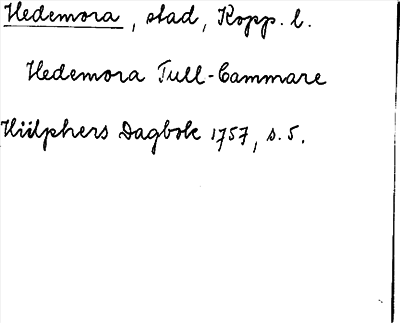 Hedemora, stad, Kopp. l.
Hedemora Tull-Cammare
Hülphers Dagbok 1757, s. 5.